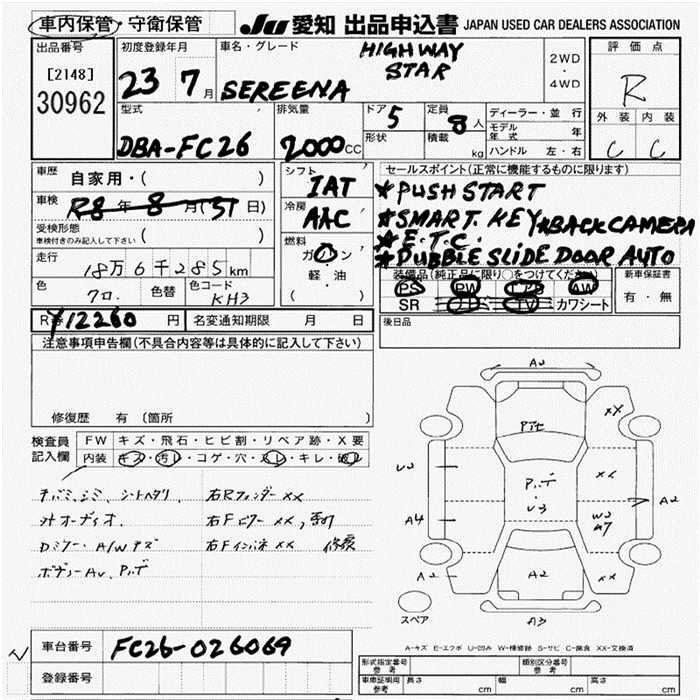 車内保管・守衛保管 JU 愛知 出品申込書 JAPAN USED CAR DEALERS ASSOCIATION
出品番号 初度登録年月 車名・グレード HIGHWAY STAR 2WD・4WD 評価点
[2148] 30962 23 7月 SEREENA R
型式 排気量 ドア 5 定員 8人 ディーラー・並行 外装 内装
DBA-FC26 2000CC 形状 積載 kg モデル年式 年 C C
ハンドル 左・右
車歴 自家用・( ) シフト IAT セールスポイント(正常に機能するものに限ります)
車検 R8年8月(31日) 冷房 AAC ★PUSH START
受検形態 車検付きのみ記入して下さい ( ) ★SMART. KEY ★BACK CAMERA
燃料 ガソリン ★E.T.C.
走行 18万6千285km 軽・油 ★DUBBLE SLIDE DOOR AUTO
色 クロ. 色替 色コード KH3 ( ) 装備品(純正品に限り○をつけてください) 新車保証書
PS PW AW 有・無
SR TV カワシート
¥12260円 名変通知期限 月 日 後日品
注意事項申告欄(不具合内容等は具体的に記入して下さい)
修復歴 有 〔箇所 〕
検査員記入欄 FW キズ・飛石・ヒビ割・リペア跡・X要
内装 キズ・汚レ・コゲ・穴・スレ・キレ・破レ
右Rフェンダー XX
外オーディオ. 右Fピラー XX,
Dミラー・A/Wキズ 右Fインパネ XX 修復
ボディーAu.
A2
XX
U3
A4
U3
XX
W2
A2
A2
A2
XX
スペア
A3
A-キズ E-エクボ U-凹み W-補修跡 S-サビ C-腐食 XX-交換済
車台番号 FC26-026069
登録番号
形式指定番号 参考 類別区分番号 参考
車庫証明用 参考 長さ cm 幅 cm 高さ cm